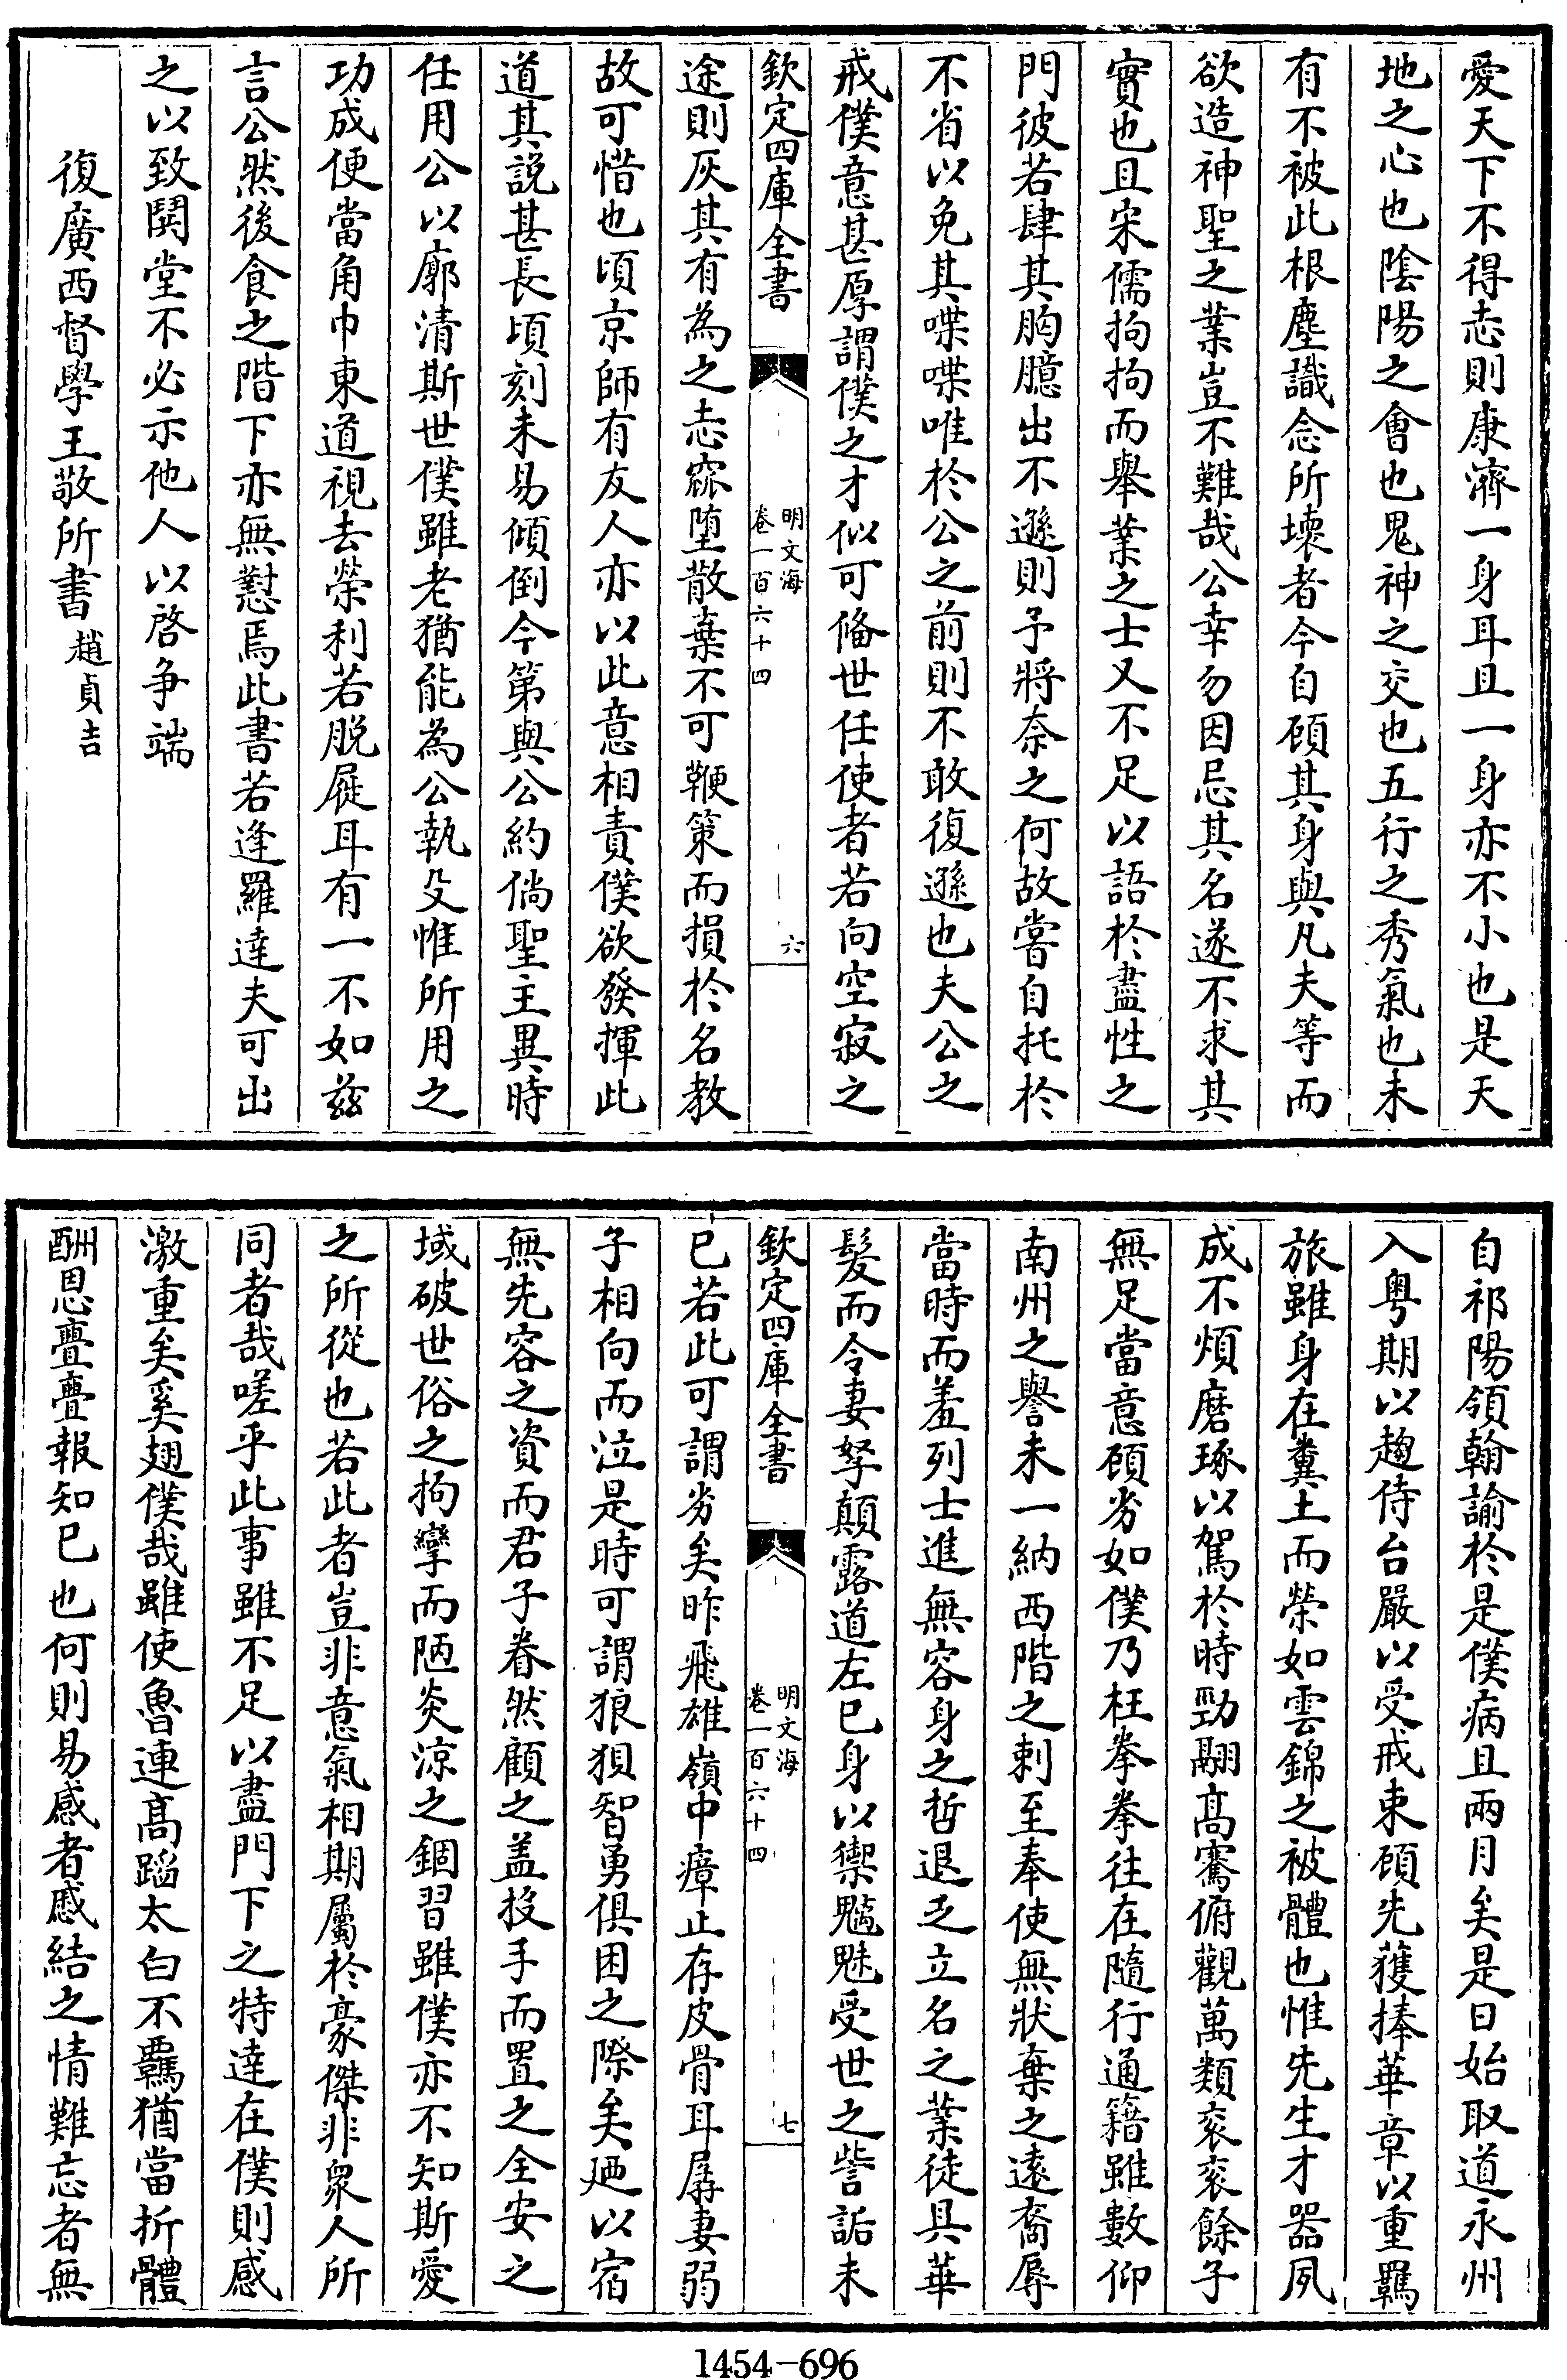 愛天下不得志則康濟一身耳且一身亦不小也是天
地之心也陰陽之會也鬼神之交也五行之秀氣也未
有不被此根塵識念所壞者今自顧其身與凡夫等而
欲造神聖之業豈不難哉公幸勿因忌其名遂不求其
實也且宋儒拘拘而舉業之士又不足以語於盡性之
門彼若肆其胸臆出不遜則予將奈之何故嘗自托於
不省以免其喋喋唯於公之前則不敢復遜也夫公之
戒僕意甚厚謂僕之才似可備世任使者若向空寂之
欽定四庫全書
明文海
卷一百六十四
六
途則灰其有為之志窳墮散棄不可鞭策而損於名教
故可惜也頃京師有友人亦以此意相責僕欲發揮此
道其説甚長頃刻未易傾倒今第與公約倘聖主異時
任用公以廓清斯世僕雖老猶能為公執殳惟所用之
功成便當角巾東道視去榮利若脱屣耳有一不如兹
言公然後食之階下亦無懟焉此書若逢羅達夫可出
之以致鬨堂不必示他人以啓争端
復廣西督學王敬所書趙貞吉
自祁陽領翰諭於是僕病且兩月矣是日始取道永州
入粤期以趨侍台嚴以受戒束顧先獲捧華章以重羈
旅雖身在糞土而榮如雲錦之被體也惟先生才器夙
成不煩磨琢以駕於時勁翮高騫俯觀萬類衮衮餘子
無足當意顧劣如僕乃枉拳拳往在隨行通籍雖數仰
南州之譽未一納西階之刺至奉使無狀棄之遠裔辱
當時而羞列士進無容身之哲退乏立名之業徒具華
髮而令妻孥顛露道左已身以禦魑魅受世之訾詬未
欽定四庫全書
明文海
卷一百六十四
七
已若此可謂劣矣昨飛雄嶺中瘴止存皮骨耳孱妻弱
子相向而泣是時可謂狼狽智勇俱困之際矣廼以宿
無先容之資而君子眷然顧之盖投手而置之全安之
域破世俗之拘攣而陋炎涼之錮習雖僕亦不知斯愛
之所從也若此者豈非意氣相期屬於豪傑非衆人所
同者哉嗟乎此事雖不足以盡門下之特達在僕則感
激重矣奚翅僕哉雖使魯連高蹈太白不羈猶當折體
酬恩亹亹報知已也何則易感者慼結之情難忘者無
1454-696